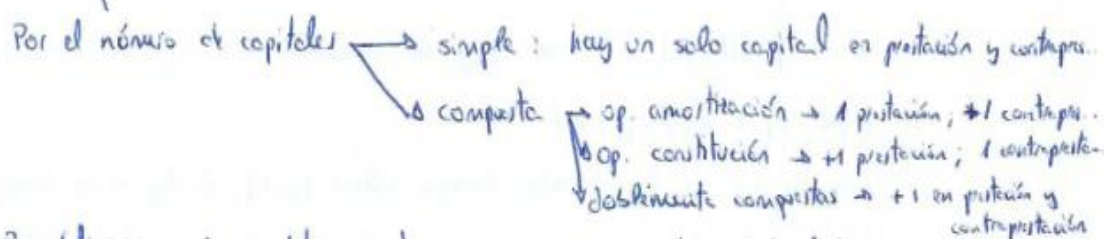 Por el número de capitales → simple: hay un solo capital en prestación y contrapres..
→ compuesta → op. amortización → 1 prestación; +1 contrapres..
→ op. constitución → +1 prestación; 1 contrapresta..
→ doblemente compuestas → +1 en prestación y
contraprestación